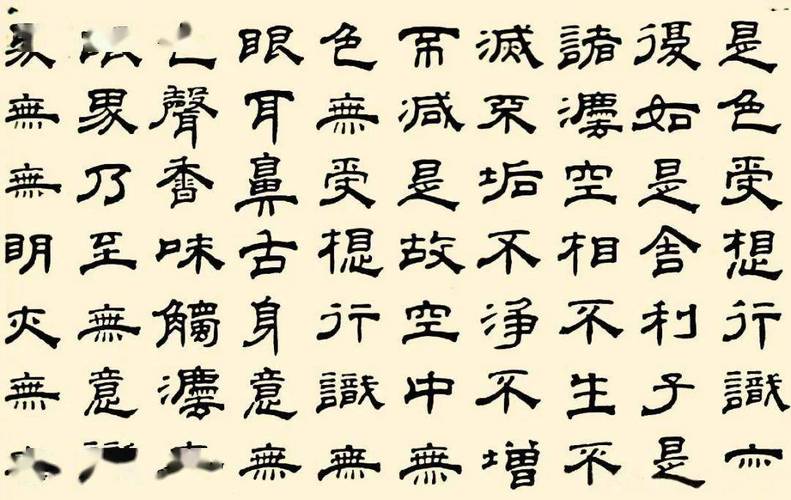 是色受想行識亦
復如是舍利子是
諸灋空相不生不
滅不垢不淨不增
不減是故空中無
色無受想行識無
眼耳鼻舌身意無
聲香味觸灋
界乃至無意
無無明亦無